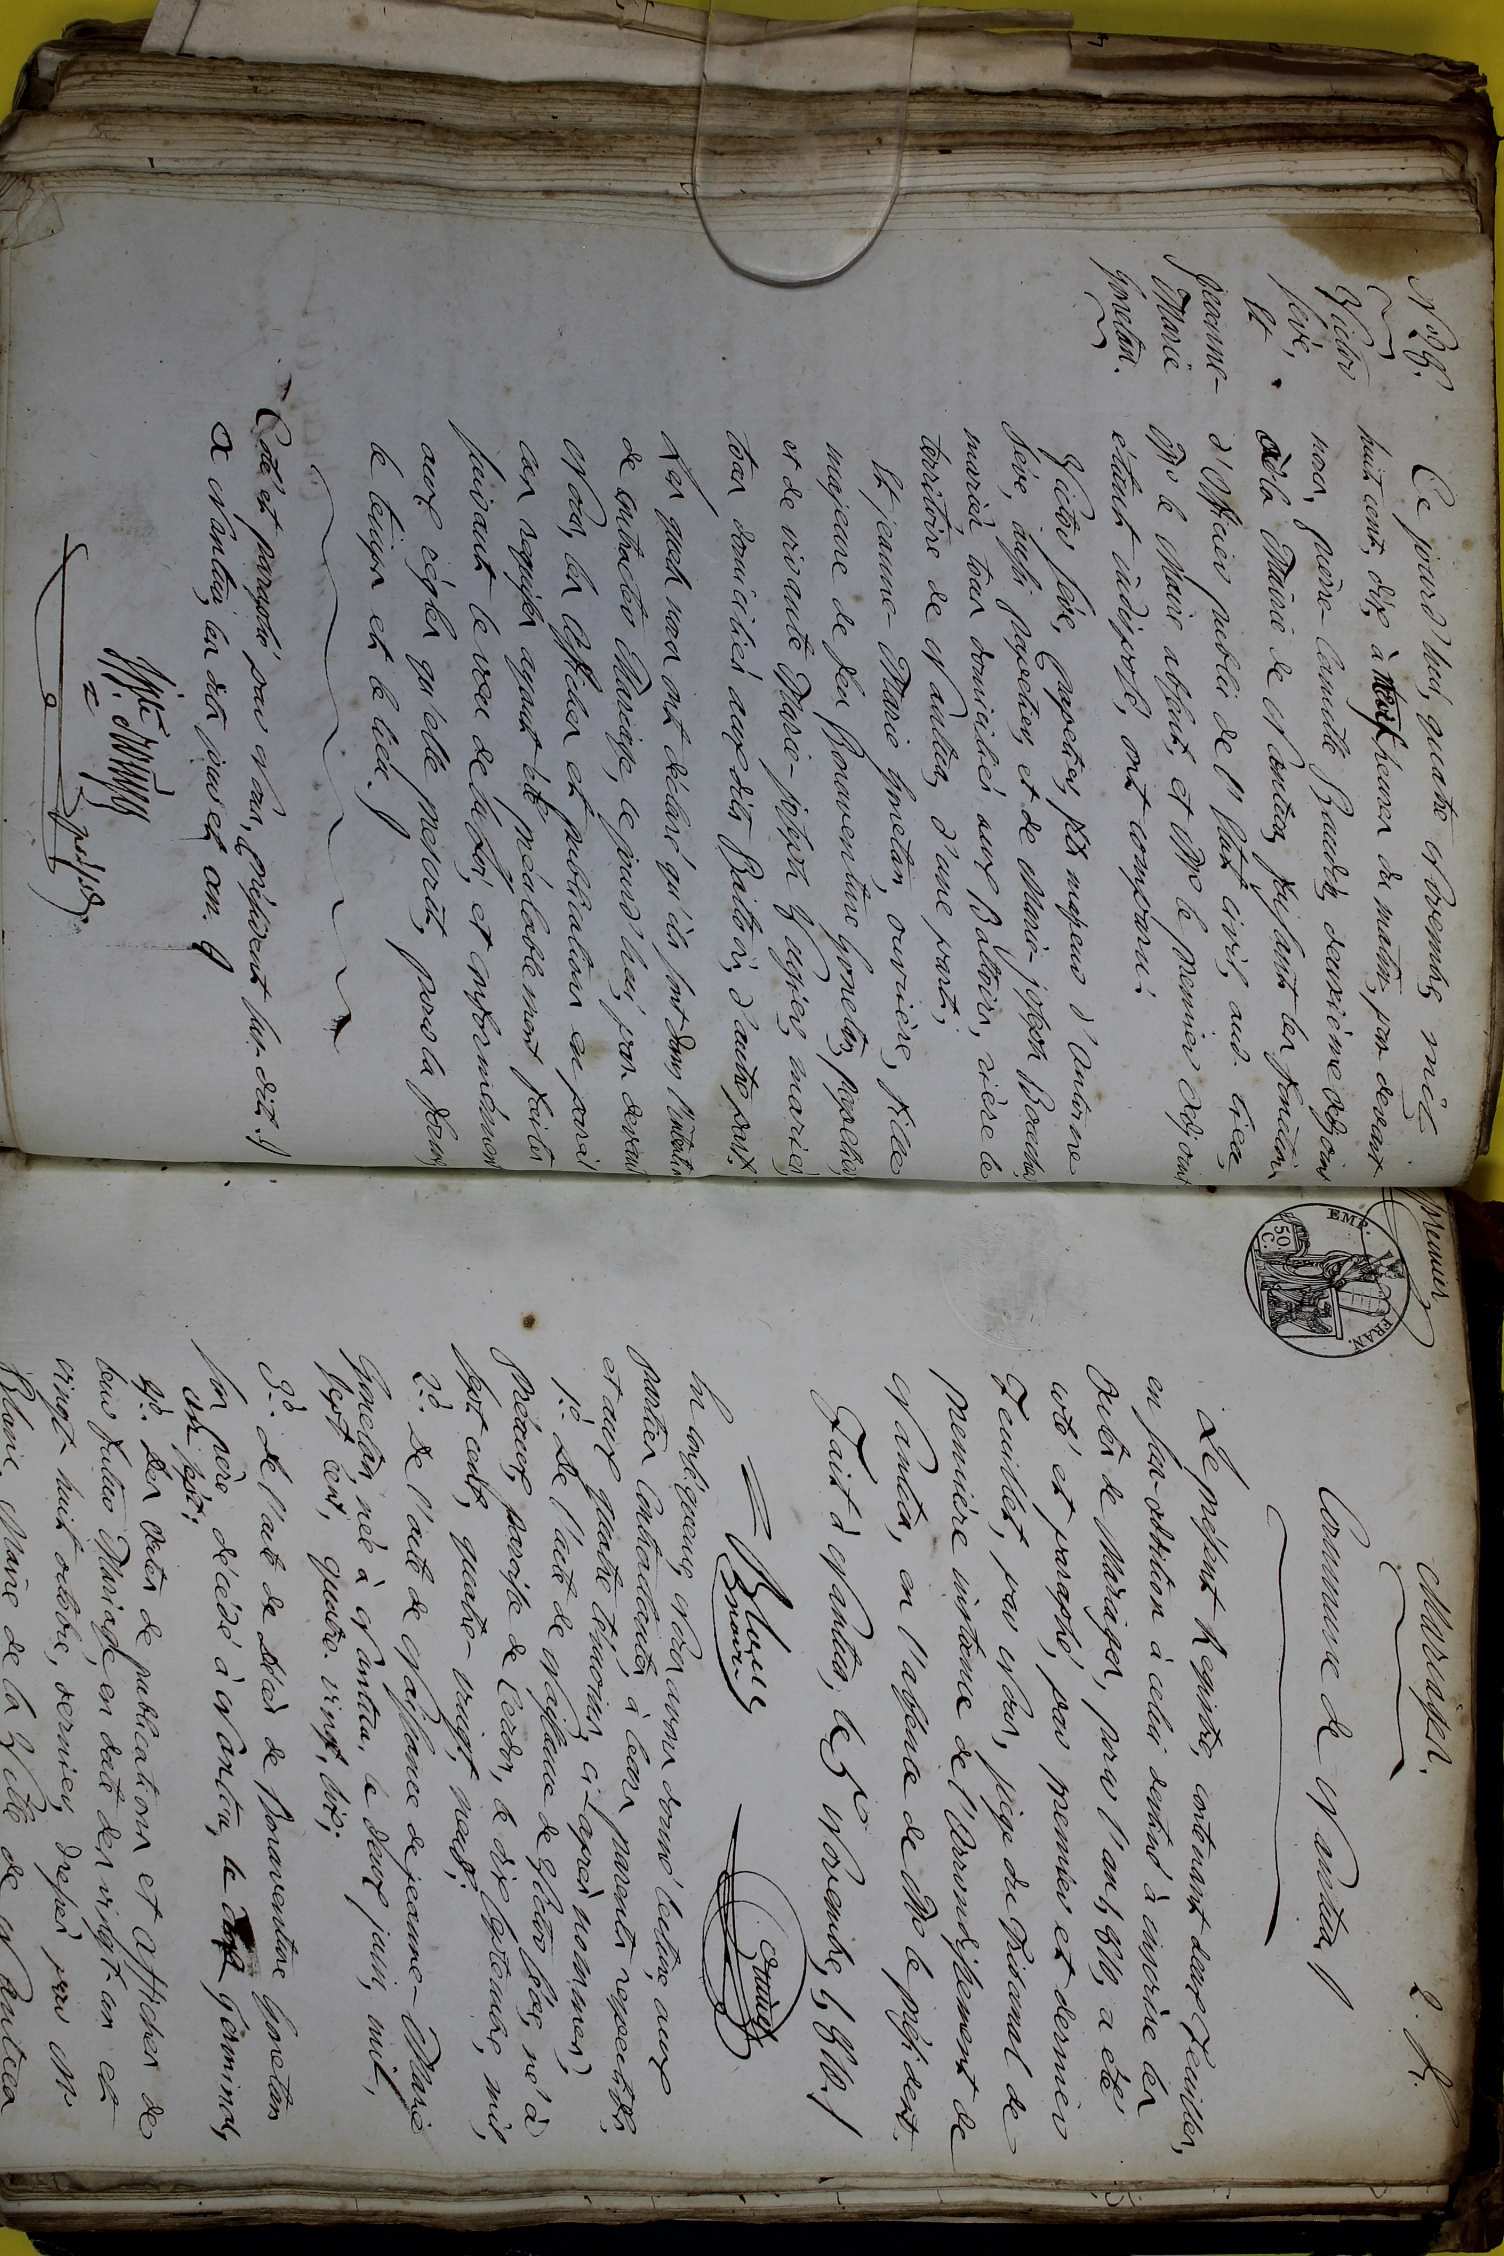 N.o 28.
Victor
fève,
Et
jeanne-
Marie
Gonetan.
Ce jourd'hui, quatre Novembre, mil-
huit cent, dix, à neuf heures du matin, par devant
nous, pierre-Camille Baudin, deuxième adjoint
à la Mairie de Nantua, faisant les fonctions
d'Officier public de l'état civil, au lieu
Mr le Maire absent, et Mr le premier adjoint
étant indisposé, ont comparu:
Victor fève, Papetier, fils majeur d'Antoine
fève, aussi papetier, et de Marie-joseph
mariés tous domiciliés aux Battoirs, rière le
territoire de Nantua, d'une part;
Et jeanne-Marie Gonetan, ouvrière, fille
majeure de feu Bonaventure Gonetan, papetier,
et de vivante Marie-joseph mariés
tous domiciliés aux dits Battoirs, d'autre part;
Les quels nous ont déclaré qu'ils sont dans l'intention
de contracter Mariage, ce jourd'hui, par devant
Nous, les affiches et publications en pareil
cas requises ayant été préalablement faites
suivant le vœu de la loi, et conformément
aux règles qu'elle prescrit, pour la forme
le temps et le lieu.
Coté et paraphé par Nous, président sus-dit.
à Nantua, les dits jour et an.
Meunier
EMP. FRAN.
50 C.
Mariages. 2. f.
Commune de Nantua
Le présent Registre, contenant deux Feuilles,
en sus-addition à celui destiné à inscrire les
Actes de Mariages, pour l'an 1,810, a été
coté et paraphé, par premier et dernier
Feuillet, par Nous, juge du Tribunal de
première instance de l'Arrondissement de
Nantua, en l'absence de Mr le président.
Fait à Nantua, le 5 Novembre 1,810.
En conséquence, Nous avons donné lecture aux
parties Contractantes, à leurs parents respectifs,
et aux quatre témoins, ci-après nommés;
1.o De l'acte de Naissance de Victor fève, né à
Préaux, paroisse de Cerdon, le dix septembre, mil,
sept cent, quatre-vingt, neuf;
2.o De l'acte de Naissance de jeanne-Marie
Gonetan, née à Nantua, le deux juin, mil,
sept cent, quatre-vingt, six;
3.o De l'acte de décès de Bonaventure Gonetan
son père, décédé à Nantua, le Germinal,
an sept;
4.o Des Actes de publications et Affiches de
leur futur Mariage, en date des vingt-un et
vingt-huit octobre, dernier, dressés par Mr
Blanc, Maire de la Ville de Nantua